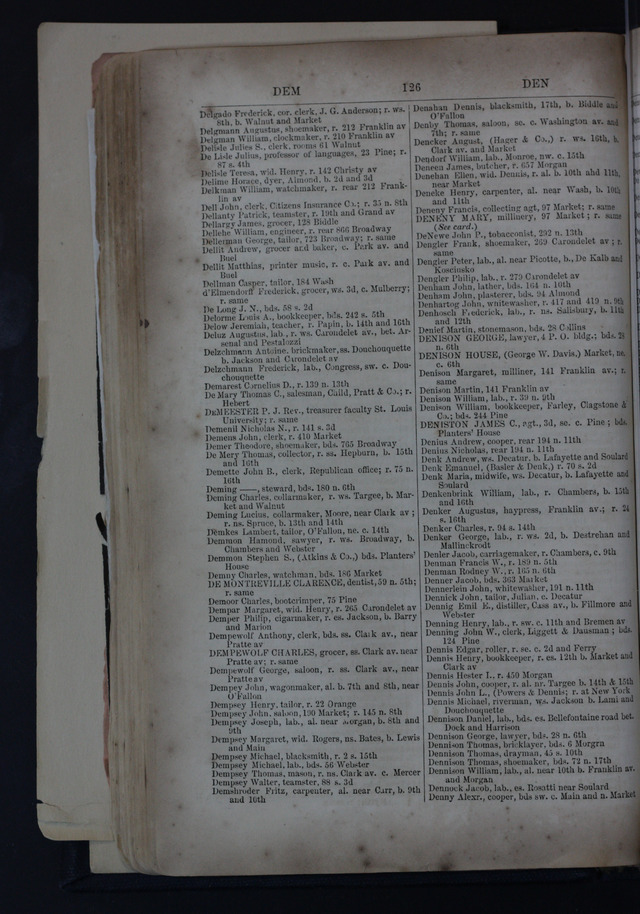 DEM 126 DEN
Delgado Frederick, cor. clerk, J. G. Anderson; r. ws.
8th, b. Walnut and Market
Delgmann Augustus, shoemaker, r. 212 Franklin av
Delgman William, clockmaker, r. 210 Franklin av
Delisle Julies S., clerk, rooms 61 Walnut
De Lisle Julius, professor of languages, 23 Pine; r.
87 s. 4th
Delisle Teresa, wid. Henry, r. 142 Christy av
Delime Horace, dyer, Almond, b. 2d and 3d
Delkman William, watchmaker, r. rear 212 Frank-
lin av
Dell John, clerk, Citizens Insurance Co.; r. 35 n. 8th
Dellanty Patrick, teamster, r. 19th and Grand av
Dellargy James, grocer, 128 Biddle
Dellehe William, engineer, r. rear 866 Broadway
Dellerman George, tailor, 723 Broadway; r. same
Dellit Andrew, grocer and baker, c. Park av. and
Buel
Dellit Matthias, printer music, r. c. Park av. and
Buel
Dellman Casper, tailor, 184 Wash
d'Elmendorff Frederick, grocer, ws. 3d, c. Mulberry;
r. same
De Long J. N., bds. 58 s. 2d
Delorme Louis A., bookkeeper, bds. 242 s. 5th
Delow Jeremiah, teacher, r. Papin, b. 14th and 16th
Deluz Augustus, lab., r. ws. Carondelet av., bet. Ar-
senal and Pestalozzi
Delzchmann Antoine, brickmaker, ss. Douchouquette
b. Jackson and Carondelet av
Delzchmann Frederick, lab., Congress, sw. c. Dou-
chouquette
Demarest Cornelius D., r. 139 n. 13th
De Mary Thomas C., salesman, Caild, Pratt & Co.; r.
Hebert
DEMEESTER P. J. Rev., treasurer faculty St. Louis
University; r. same
Demenil Nicholas N., r. 141 s. 3d
Demens John, clerk, r. 410 Market
Demer Theodore, shoemaker, bds. 765 Broadway
De Mery Thomas, collector, r. ss. Hepburn, b. 15th
and 16th
Demette John B., clerk, Republican office; r. 75 n.
16th
Deming ——, steward, bds. 180 n. 6th
Deming Charles, collarmaker, r. ws. Targee, b. Mar-
ket and Walnut
Deming Lucius, collarmaker, Moore, near Clark av;
r. ns. Spruce, b. 13th and 14th
Demkes Lambert, tailor, O'Fallon, ne. c. 14th
Demmon Hamond, sawyer, r. ws. Broadway, b.
Chambers and Webster
Demmon Stephen S., (Atkins & Co.,) bds. Planters'
House
Demny Charles, watchman, bds. 186 Market
DE MONTREVILLE CLARENCE, dentist, 59 n. 5th;
r. same
Demoor Charles, bootcrimper, 75 Pine
Dempar Margaret, wid. Henry, r. 265 Carondelet av
Demper Philip, cigarmaker, r. es. Jackson, b. Barry
and Marion
Dempewolf Anthony, clerk, bds. ss. Clark av., near
Pratte av
DEMPEWOLF CHARLES, grocer, ss. Clark av. near
Pratte av; r. same
Dempewolf George, saloon, r. ss. Clark av., near
Pratte av
Dempey John, wagonmaker, al. b. 7th and 8th, near
O'Fallon
Dempsey Henry, tailor, r. 22 Orange
Dempsey John, saloon, 190 Market; r. 145 n. 8th
Dempsey Joseph, lab., al. near Morgan, b. 8th and
9th
Dempsey Margaret, wid. Rogers, ns. Bates, b. Lewis
and Main
Dempsey Michael, blacksmith, r. 2 s. 15th
Dempsey Michael, lab., bds. 56 Webster
Dempsey Thomas, mason, r. ns. Clark av. c. Mercer
Dempsey Walter, teamster, 88 s. 3d
Demshroder Fritz, carpenter, al. near Carr, b. 9th
and 10th
Denahan Dennis, blacksmith, 17th, b. Biddle and
O'Fallon
Denby Thomas, saloon, se. c. Washington av. and
7th; r. same
Dencker August, (Hager & Co.,) r. ws. 16th, b.
Clark av. and Market
Dendorf William, lab., Monroe, nw. c. 15th
Deneen James, butcher, r. 657 Morgan
Denehan Ellen, wid. Dennis, r. al. b. 10th and 11th,
near Market
Deneke Henry, carpenter, al. near Wash, b. 10th
and 11th
Deneny Francis, collecting agt, 97 Market; r. same
DENENY MARY, millinery, 97 Market; r. same
(See card.)
DeNewe John P., tobacconist, 292 n. 13th
Dengler Frank, shoemaker, 269 Carondelet av; r.
same
Dengler Peter, lab., al. near Picotte, b., De Kalb and
Kosciusko
Dengler Philip, lab., r. 279 Carondelet av
Denham John, lather, bds. 164 n. 10th
Denham John, plasterer, bds. 94 Almond
Denhartog John, whitewasher, r. 417 and 419 n. 9th
Denhosch Frederick, lab., r. ns. Salisbury, b. 11th
and 12th
Denief Martin, stonemason, bds. 28 Collins
DENISON GEORGE, lawyer, 4 P. O. bldg.; bds. 28
n. 6th
DENISON HOUSE, (George W. Davis,) Market, ne.
c. 6th
Denison Margaret, milliner, 141 Franklin av.; r.
same
Denison Martin, 141 Franklin av
Denison William, lab., r. 39 n. 9th
Denison William, bookkeeper, Farley, Clagstone &
Co.; bds. 244 Pine
DENISTON JAMES C., agt., 3d, se. c. Pine; bds.
Planters' House
Denius Andrew, cooper, rear 194 n. 11th
Denius Nicholas, rear 194 n. 11th
Denk Andrew, ws. Decatur, b. Lafayette and Soulard
Denk Emanuel, (Basler & Denk,) r. 70 s. 2d
Denk Maria, midwife, ws. Decatur, b. Lafayette and
Soulard
Denkenbrink William, lab., r. Chambers, b. 15th
and 16th
Denker Augustus, haypress, Franklin av.; r. 24
s. 16th
Denker Charles, r. 94 s. 14th
Denker George, lab., r. ws. 2d, b. Destrehan and
Mallinckrodt
Denler Jacob, carriagemaker, r. Chambers, c. 9th
Denman Francis W., r. 189 n. 5th
Denman Rodney W., r. 165 n. 6th
Denner Jacob, bds. 363 Market
Dennerlein John, whitewasher, 191 n. 11th
Dennick John, tailor, Julian, c. Decatur
Dennig Emil E., distiller, Cass av., b. Fillmore and
Webster
Denning Henry, lab., r. sw. c. 11th and Bremen av
Denning John W., clerk, Liggett & Dausman; bds.
124 Pine
Dennis Edgar, roller, r. se. c. 2d and Ferry
Dennis Henry, bookkeeper, r. es. 12th b. Market and
Clark av
Dennis Hester I., r. 450 Morgan
Dennis John, cooper, r. al. nr. Targee b. 14th & 15th
Dennis John L., (Powers & Dennis; r. at New York
Dennis Michael, riverman, ws. Jackson b. Lami and
Douchouquette
Dennison Daniel, lab., bds. es. Bellefontaine road bet.
Dock and Harrison
Dennison George, lawyer, bds. 28 n. 6th
Dennison Thomas, bricklayer, bds. 6 Morgrn
Dennison Thomas, drayman, 45 s. 10th
Dennison Thomas, shoemaker, bds. 72 n. 17th
Dennison William, lab., al. near 10th b. Franklin av.
and Morgan
Dennock Jacob, lab., es. Rosatti near Soulard
Denny Alexr., cooper, bds sw. c. Main and n. Market